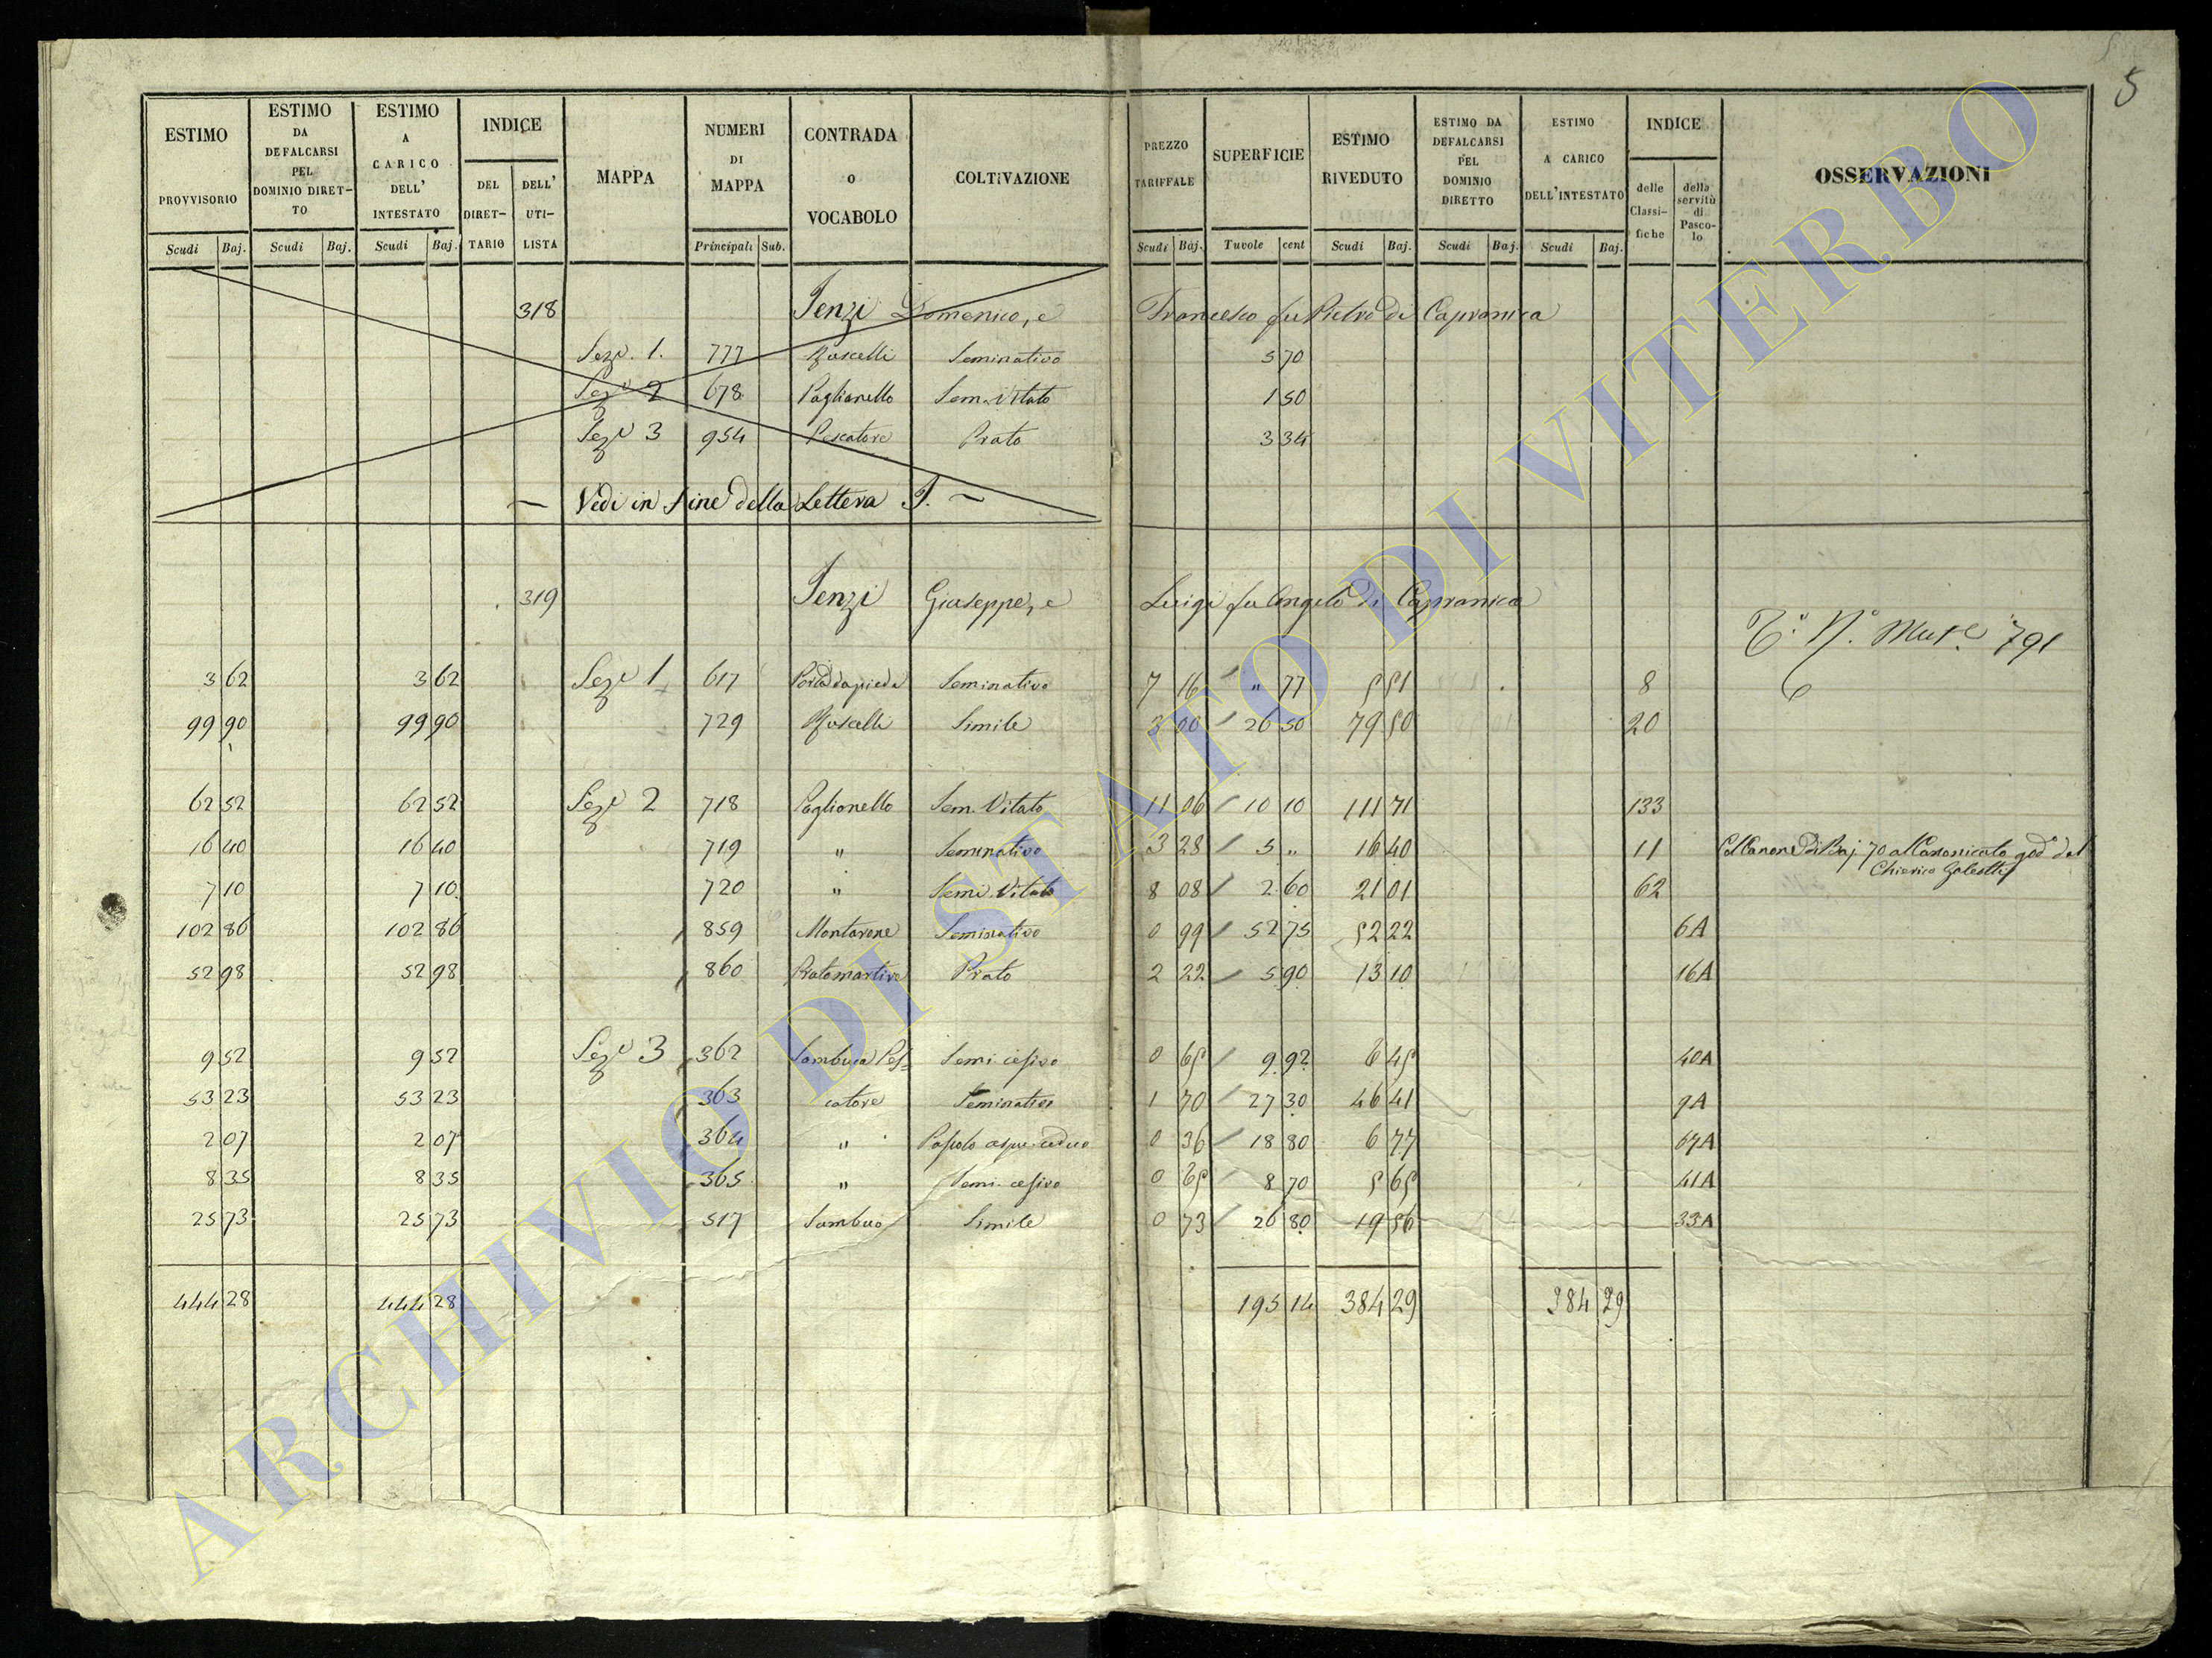 5
ESTIMO PROVVISORIO Scudi Baj. | ESTIMO DA DEFALCARSI PEL DOMINIO DIRET-TO Scudi Baj. | ESTIMO A CARICO DELL' INTESTATO Scudi Baj. | INDICE DEL DIRET-TARIO | DELL' UTI-LISTA | MAPPA | NUMERI DI MAPPA Principali Sub. | CONTRADA O VOCABOLO | COLTIVAZIONE | PREZZO TARIFFALE Scudi Baj. | SUPERFICIE Tavole cent | ESTIMO RIVEDUTO Scudi Baj. | ESTIMO DA DEFALCARSI PEL DOMINIO DIRETTO Scudi Baj. | ESTIMO A CARICO DELL'INTESTATO Scudi Baj. | INDICE delle Classi-fiche | della servitù di Pasco-lo | OSSERVAZIONI
318 Tenzi Domenico, e Francesco fu Pietro di Capranica
Sez.e 1. 777 Seminativo 5 70
Sez.e 2 678 Paglianello Sem. Vitato 1 50
Sez.e 3 954 Pescatore Prato 3 34
— Vedi in fine della Lettera T. —
319 Tenzi Giuseppe, e Luigi fu Angelo di Capranica
791
3 62 3 62 Sez.e 1 617 Seminativo 7 16 " 77 5 51 8
99 90 99 90 729 Simile 3 00 26 50 79 50 20
62 52 62 52 Sez.e 2 718 Paglionello Sem. Vitato 11 06 10 10 111 71 133
16 40 16 40 719 " Seminativo 3 28 5 " 16 40 11 Col Canone di Baj. 70 al Canonicato god.o dal
Chierico Galeotti
7 10 7 10 720 " Sem. Vitato 8 08 2 60 21 01 62
102 86 102 86 859 Montarone Seminativo 0 99 52 75 52 22 6A
52 98 52 98 860 Pratomartino Prato 2 22 5 90 13 10 16A
9 52 9 52 Sez.e 3 362 Sambuca Pes= Semi. cesivo 0 65 9 92 6 45 40A
53 23 53 23 363 catore Seminativo 1 70 27 30 46 41 9A
2 07 2 07 364 " Pascolo cesp. ceduo 0 36 18 80 6 77 67A
8 35 8 35 365 " Semi. cesivo 0 65 8 70 5 65 41A
25 73 25 73 517 Sambuco Simile 0 73 26 80 19 56 33A
444 28 444 28 195 14 384 29 384 29
ARCHIVIO DI STATO DI VITERBO